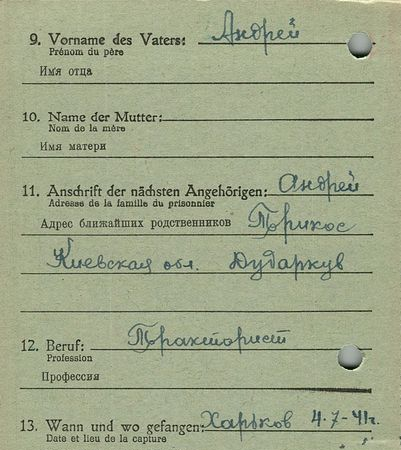 9. Vorname des Vaters: Андрей
Prénom du père
Имя отца
10. Name der Mutter:
Nom de la mère
Имя матери
11. Anschrift der nächsten Angehörigen: Андрей
Adresse de la famille du prisonnier
Адрес ближайших родственников Торикос
Киевская обл. Дударкув
12. Beruf: Тракторист
Profession
Профессия
13. Wann und wo gefangen: Харьков 4.7-41г.
Date et lieu de la capture